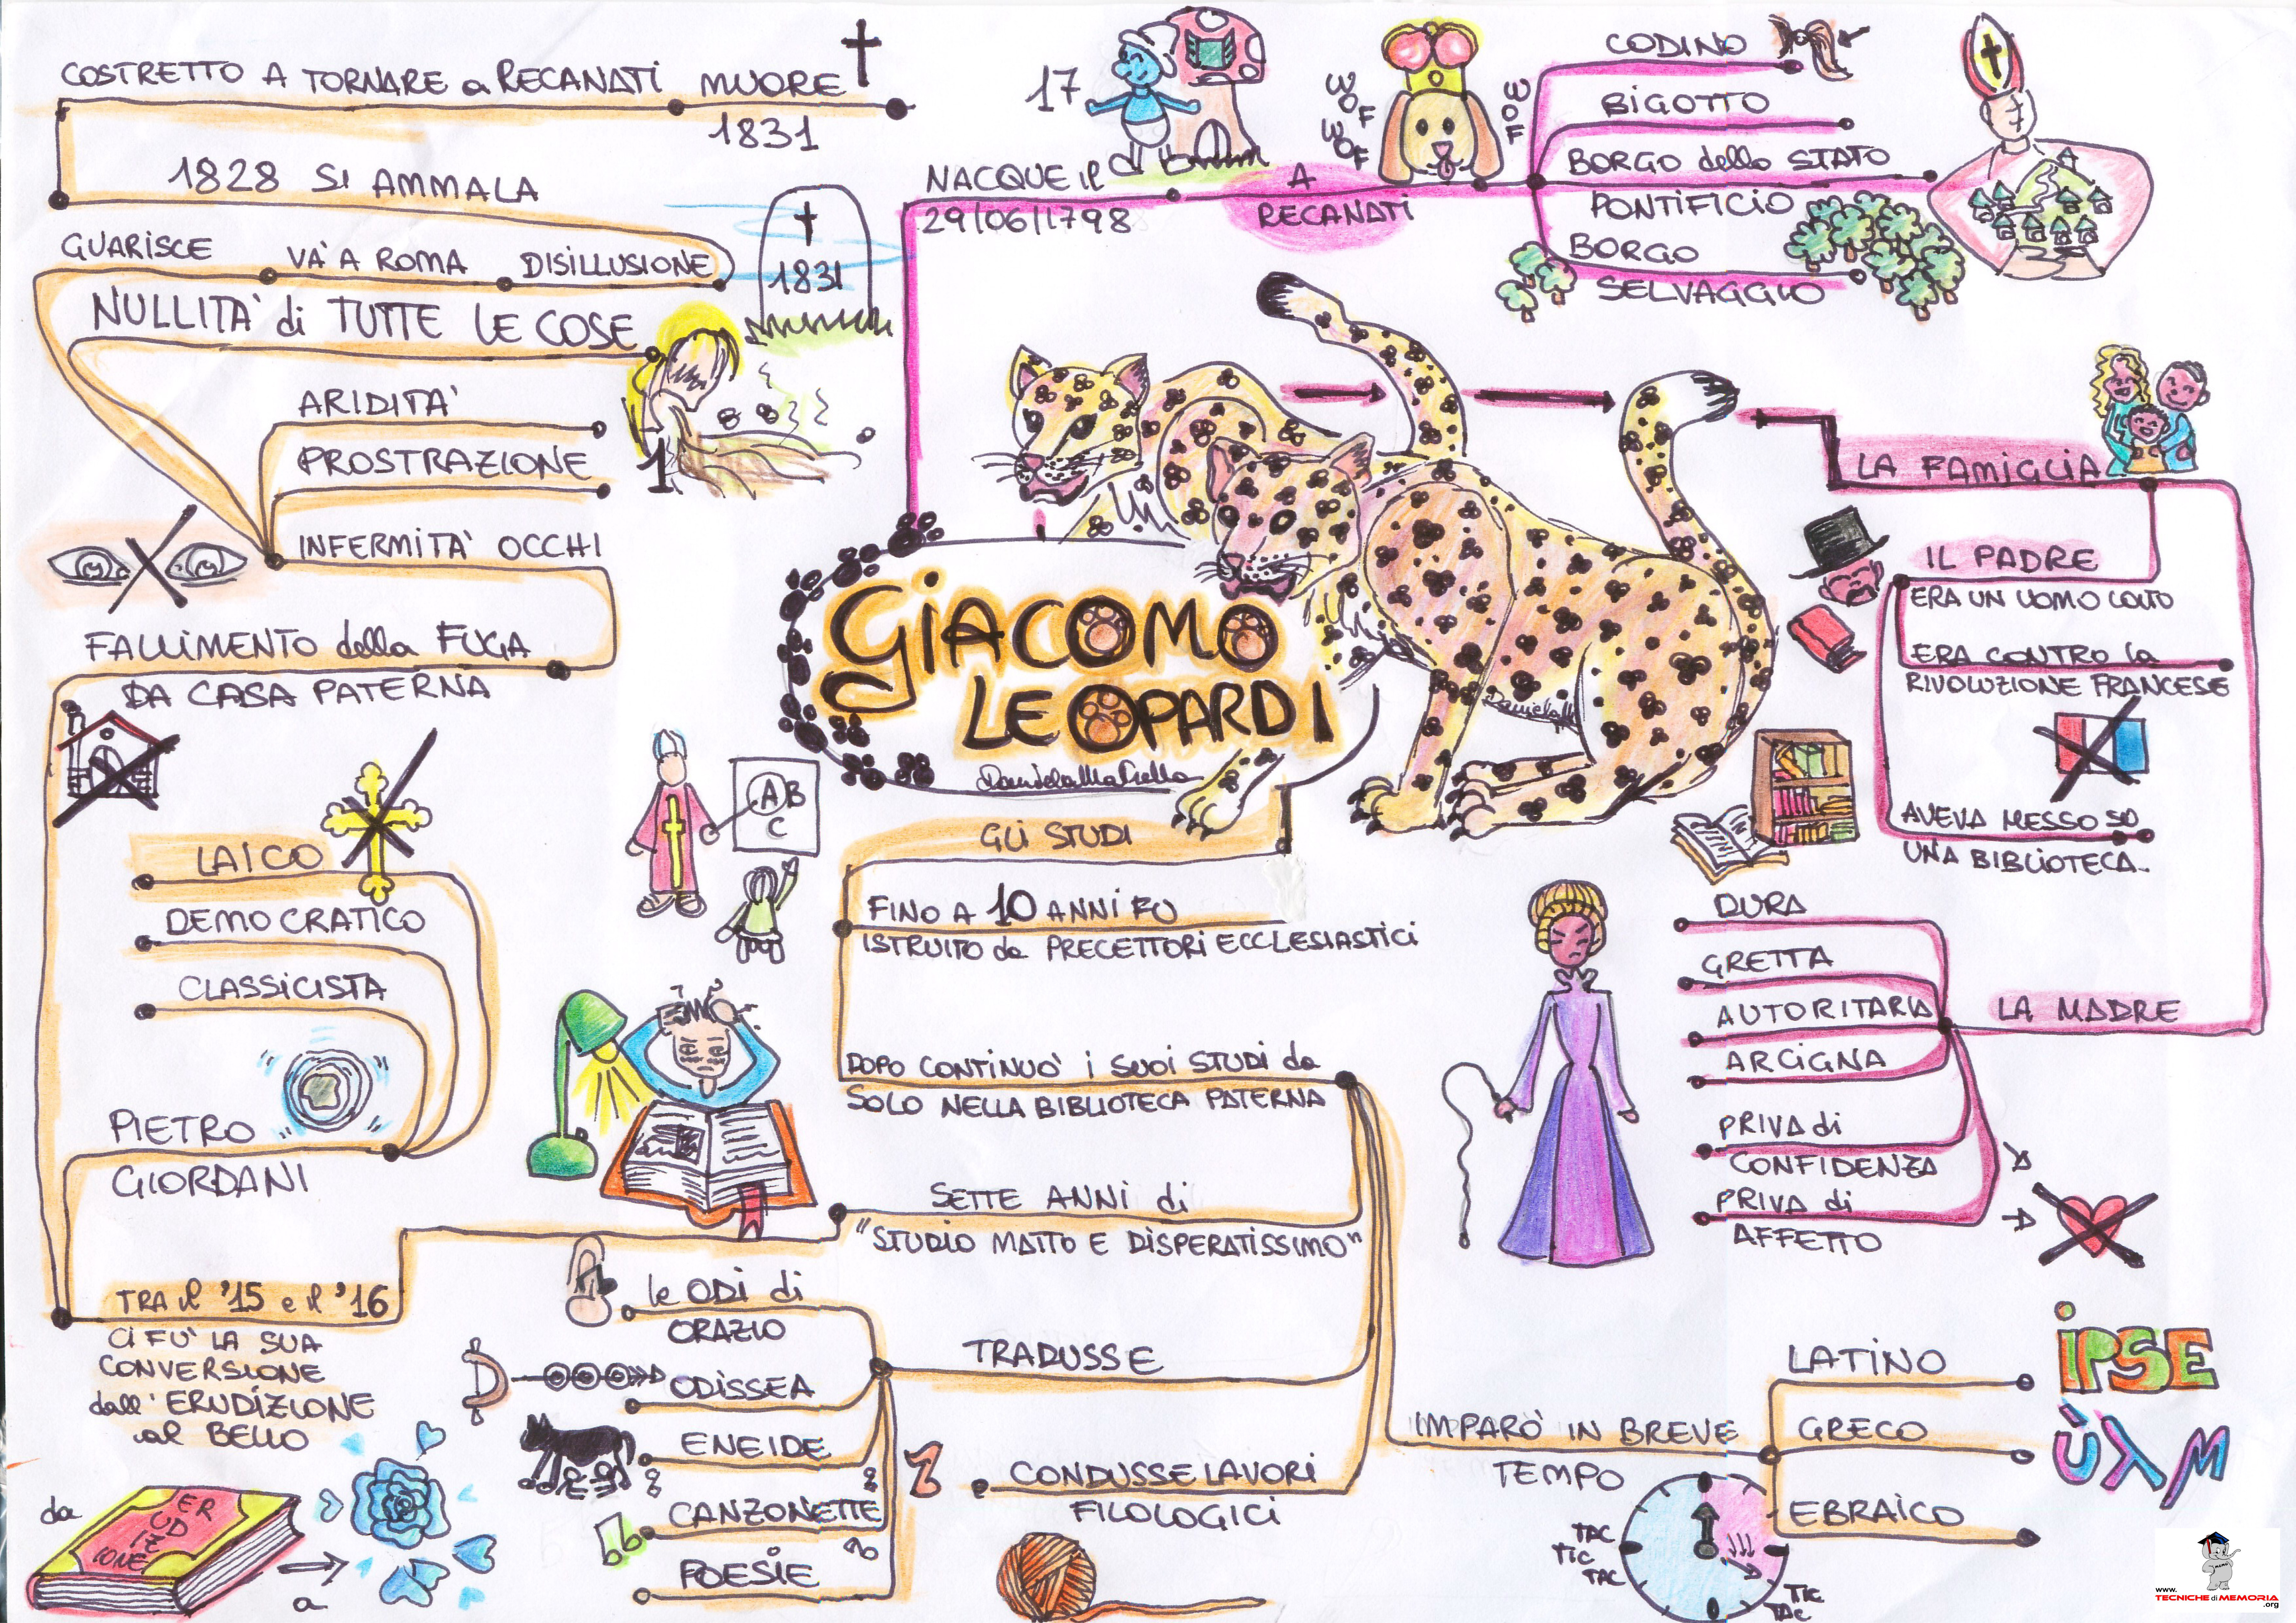 GIACOMO
LEOPARDI
NACQUE il
29/06/1798
17
A
RECANATI
WOF
WOF
WOF
CODINO
BIGOTTO
BORGO dello STATO
PONTIFICIO
BORGO
SELVAGGIO
LA FAMIGLIA
IL PADRE
ERA UN UOMO COLTO
ERA CONTRO la
RIVOLUZIONE FRANCESE
AVEVA MESSO SU
UNA BIBLIOTECA
LA MADRE
DURA
GRETTA
AUTORITARIA
ARCIGNA
PRIVA di
CONFIDENZA
PRIVA di
AFFETTO
GLI STUDI
FINO A 10 ANNI FU
ISTRUITO da PRECETTORI ECCLESIASTICI
A B
C
DOPO CONTINUO' i SUOI STUDI da
SOLO NELLA BIBLIOTECA PATERNA
IMPARO' IN BREVE
TEMPO
TAC
TIC
TAC
TIC
TAC
LATINO
IPSE
GRECO
EBRAICO
CONDUSSE LAVORI
FILOLOGICI
TRADUSSE
le ODI di
ORAZIO
ODISSEA
ENEIDE
CANZONETTE
POESIE
SETTE ANNI di
"STUDIO MATTO E DISPERATISSIMO"
TRA il '15 e il '16
CI FU' LA SUA
CONVERSIONE
dall'ERUDIZIONE
al BELLO
da
ER
UDI
Z
IONE
a
PIETRO
GIORDANI
LAICO
DEMOCRATICO
CLASSICISTA
FALLIMENTO della FUGA
DA CASA PATERNA
INFERMITA' OCCHI
PROSTRAZIONE
ARIDITA'
NULLITA' di TUTTE LE COSE
1
GUARISCE
VA' A ROMA
DISILLUSIONE
1828 SI AMMALA
COSTRETTO A TORNARE a RECANATI
MUORE
1831
1831
www.
TECNICHE di MEMORIA
.org